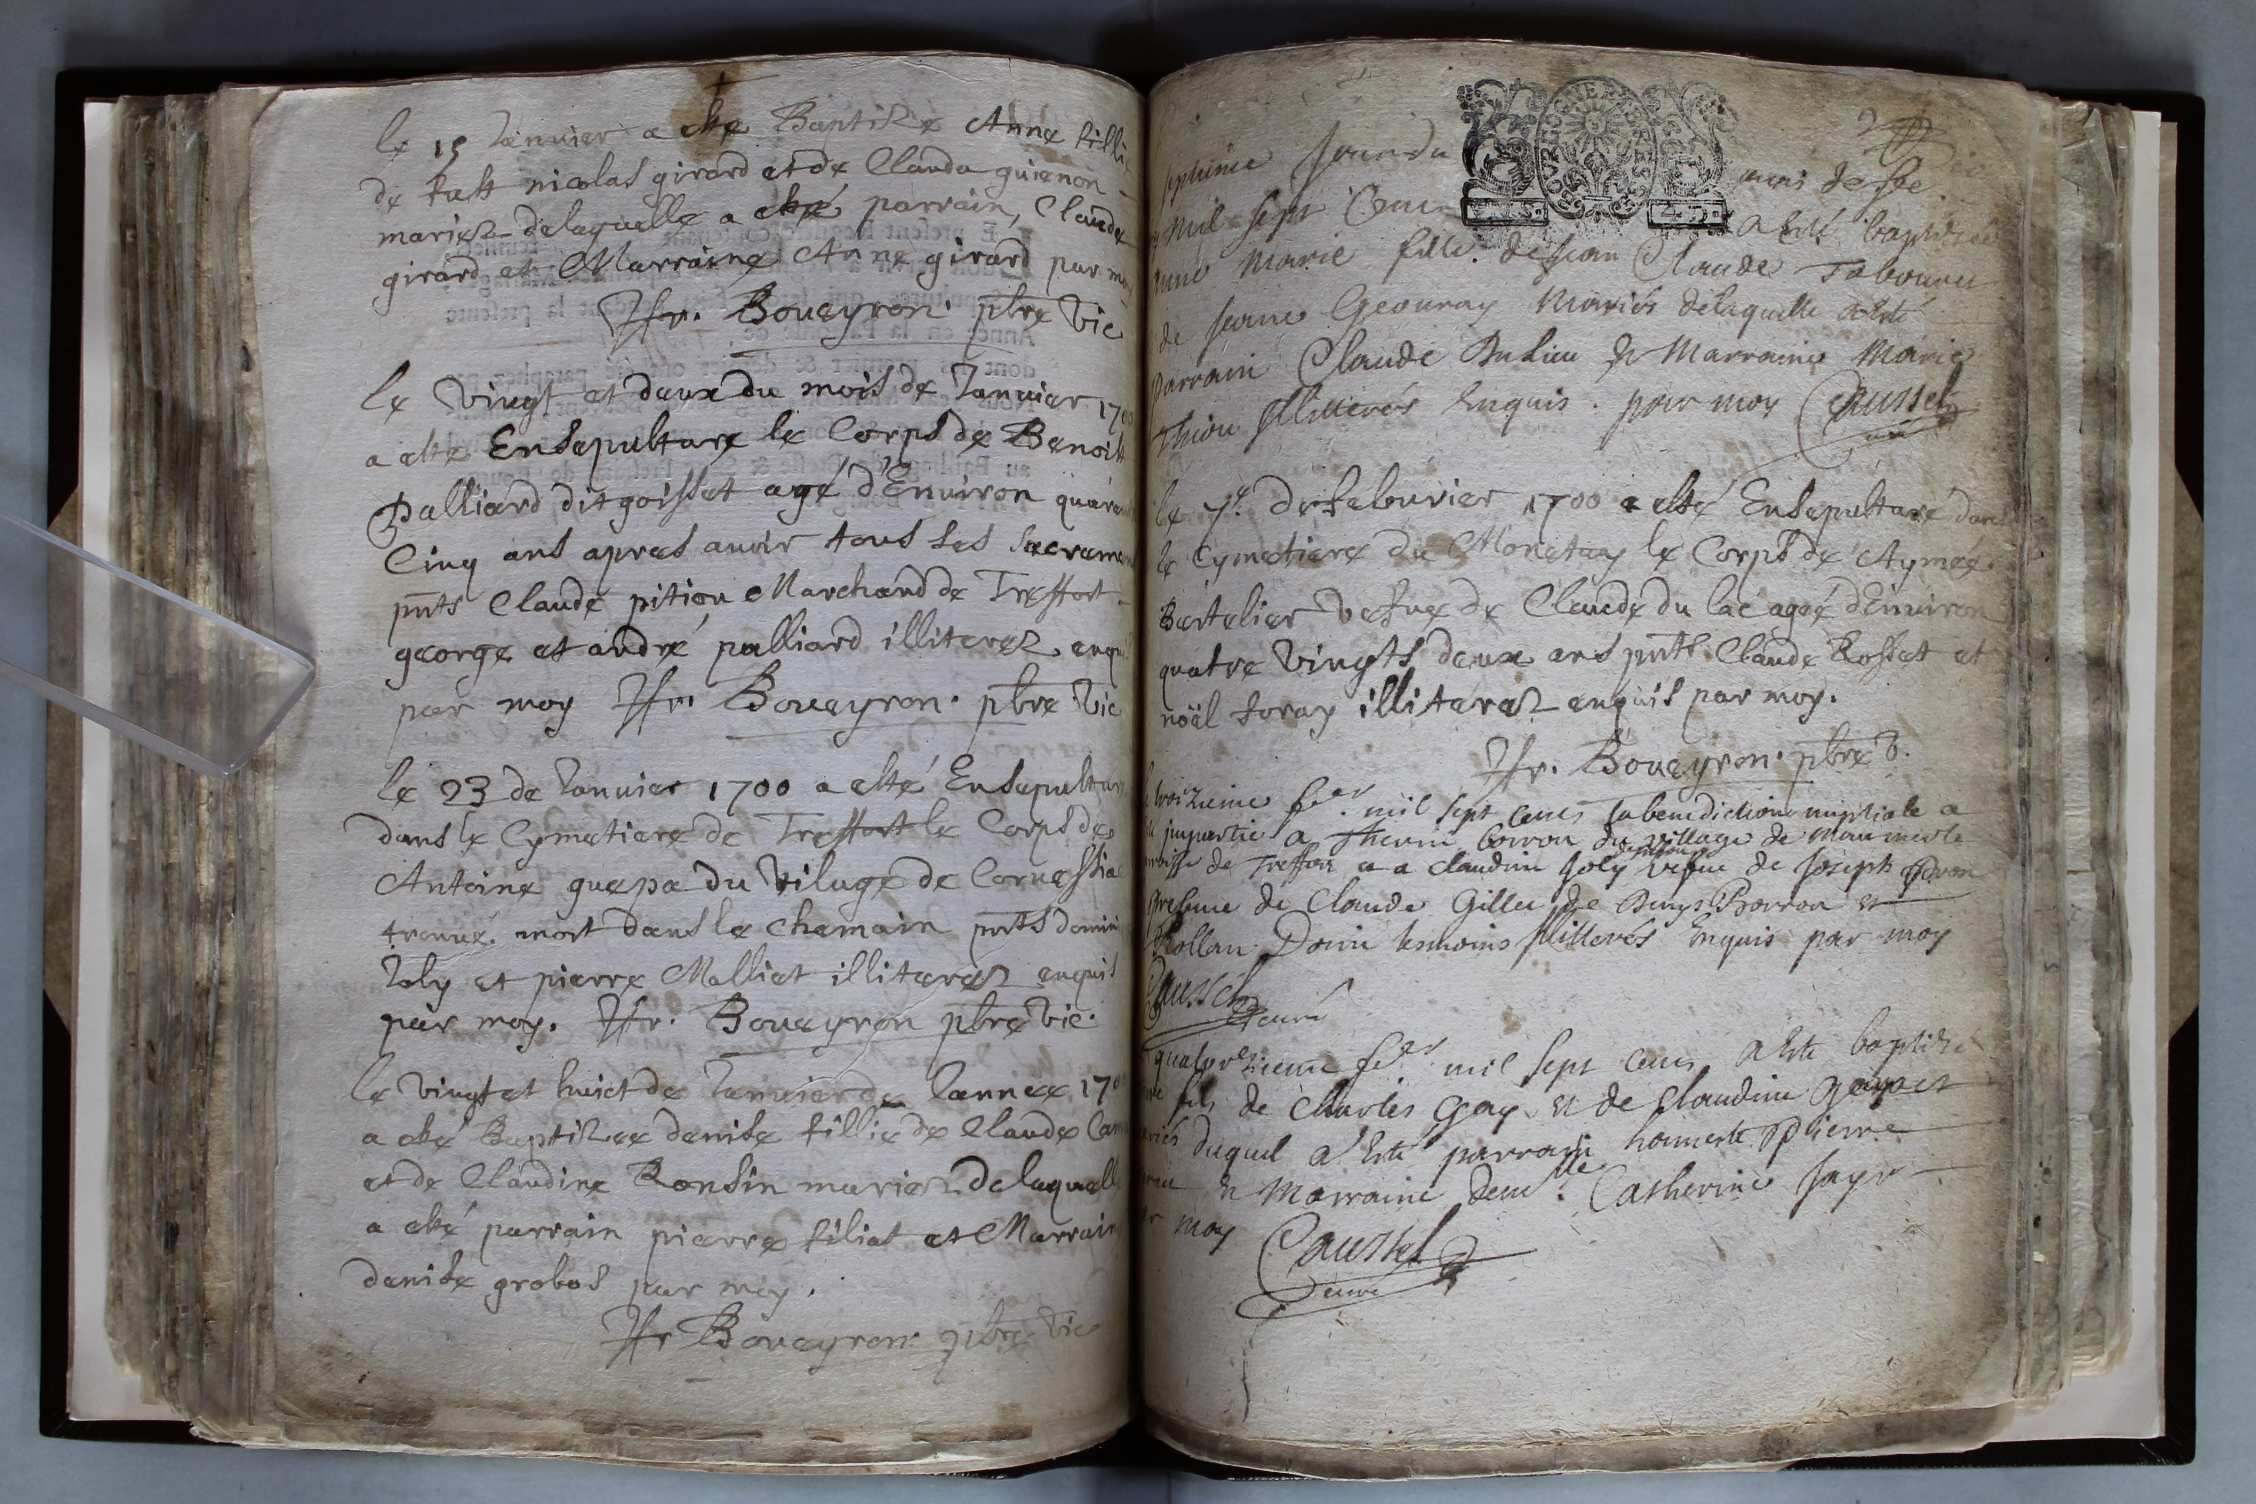 le 15 Janvier a esté Baptisée Anne fillie
de fust nicolas girard et de Clauda guienon
mariez delaquelle a esté parrain, Claude
girard et Marraine Anne girard par moy
Hr. Boueyron pbre Vic
le Vingt et deux du mois de Janvier 1700
a esté Ensepulture le Corps de Benoist
Palliard dit goisset agé d'Enuiron quaran
Cinq ans apres auoir tous ses Sacrem
pnts Claude pition Marchand de Treffort
george et andré palliard illiterez enqu
par moy Hr. Boueyron pbre Vic
le 23 de Janvier 1700 a esté Ensepultur
dans le Cymetiere de Treffort le Corps de
Antoine guepa du Viluge de Cornessia
trouué mort dans le chemain pnts
Joly et pierre Malliat illiterez enquis
par moy. Hr. Boueyron pbre Vic.
le Vingt et huict de Januier de Lannee 170
a esté Baptizee denise fillie de Claude
et de Claudine Ronsin mariez delaquell
a esté parrain pierre filiat et Marrain
denise grobos par moy.
Hr Boueyron pbre Vic
Jour du mois de
mil sept Cent a esté baptisée
Marie fille de Jean Claude Tabouret
de Jeane Geouray Mariés delaquelle a esté
parrain Claude Dulieu et Marraine Marie
Thion Illiterés Enquis. par moy Caussel
curé
le 7e. de febuvrier 1700 a esté Ensepulturé dans
le Cymetiere du Monetay le Corps de Aymée
Bertelier Vefue de Claude du lac agée d'Enuiron
quatre Vingts deux ans pnts Claude Rosset et
noël foray illiterez enquis par moy.
Hr. Boueyron pbre V.
troizieme fer. mil sept cens la benediction nuptiale a
impartie a Thevin borron du village de
de Treffort et a claudine Joly vefue de Joseph
presence de Claude Gillet de Denys Borron et
Rollan Doin tesmoins Illiterés Enquis par moy
Caussel
curé
quatorzieme fer mil sept cens a esté baptizé
fils de Charles Gay et de Claudine
duquel a esté parrain honneste Pierre
et Marraine demlle. Catherine Jayr
moy Caussel
curé